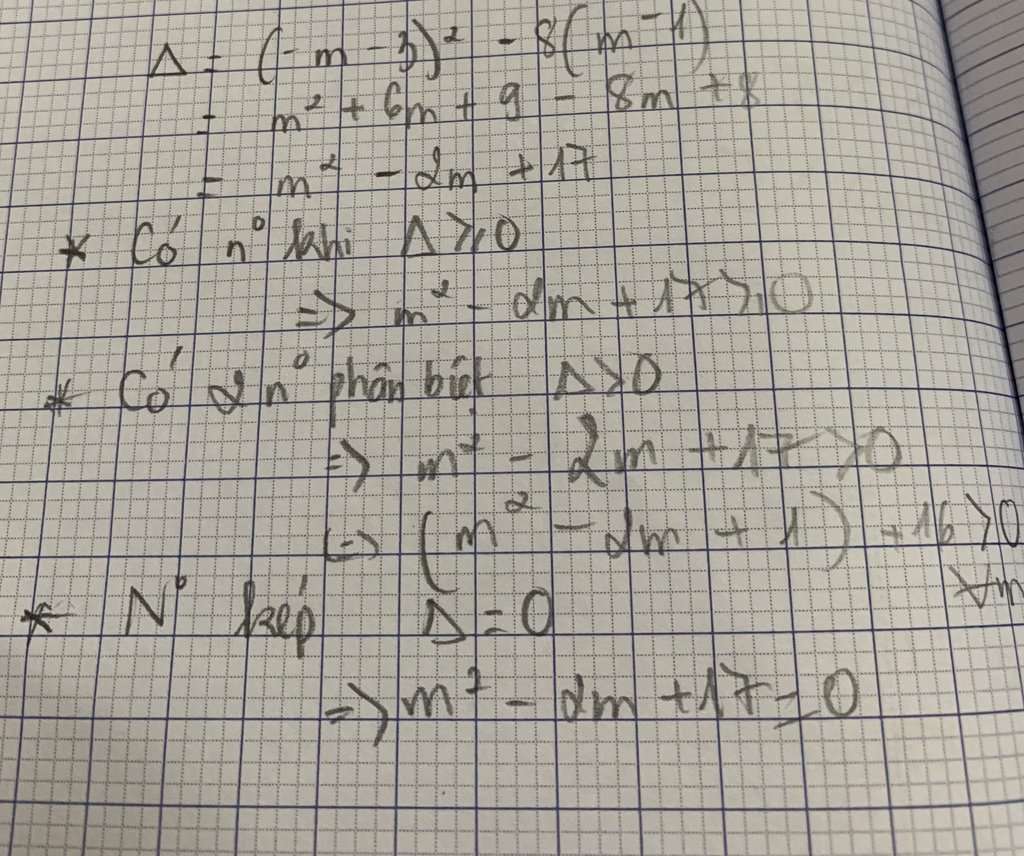 Δ = (-m - 3)² - 8(m - 1)
= m² + 6m + 9 - 8m + 8
= m² - 2m + 17
* Có n⁰ khi Δ ≥ 0
=> m² - 2m + 17 ≥ 0
* Có 2 n⁰ phân biệt Δ > 0
=> m² - 2m + 17 > 0
(=> (m² - 2m + 1) + 16 > 0
∀m
* N⁰ kép Δ = 0
=> m² - 2m + 17 = 0